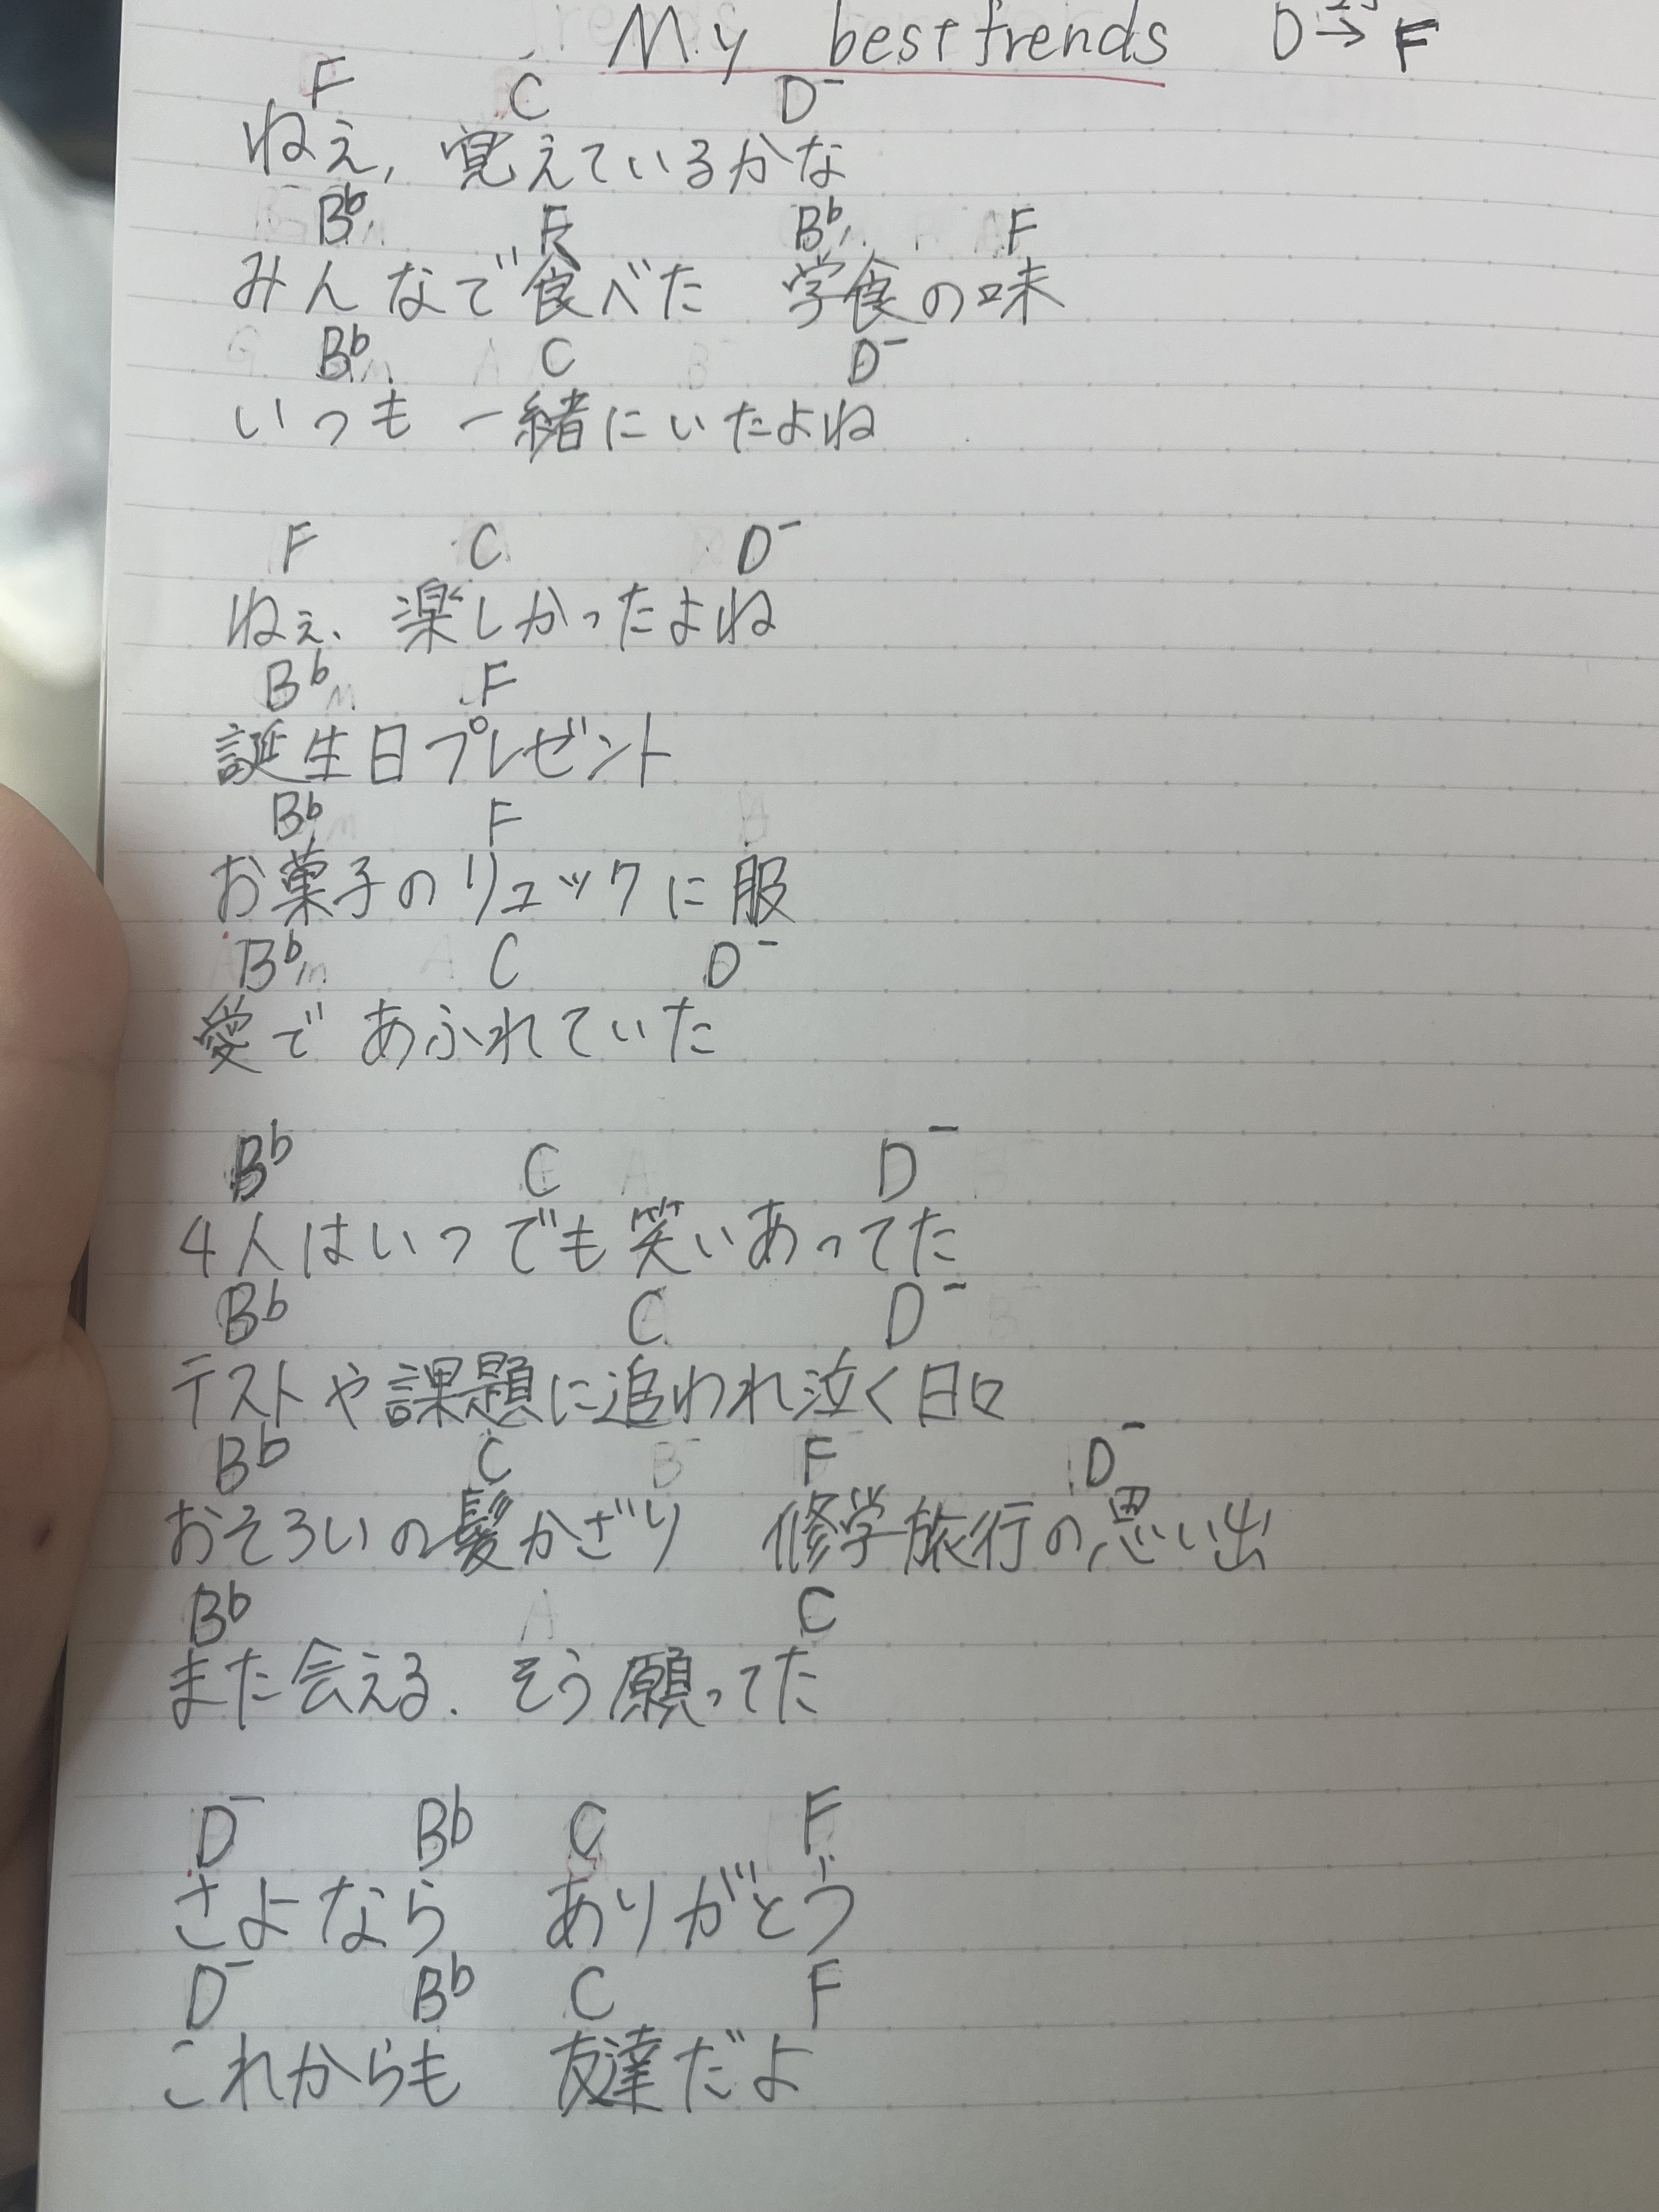 My bestfrends D→F
F C D⁻
ねえ, 覚えているかな
B♭ F B♭ F
みんなで食べた 学食の味
B♭ C D⁻
いつも一緒にいたよね
F C D⁻
ねぇ、楽しかったよね
B♭ F
誕生日プレゼント
B♭ F
お菓子のリュックに服
B♭ C D⁻
愛であふれていた
B♭ C D⁻
4人はいつでも笑いあってた
B♭ C D⁻
テストや課題に追われ泣く日々
B♭ C F D⁻
おそろいの髪かざり 修学旅行の思い出
B♭ C
また会える、そう願ってた
D⁻ B♭ C F
さよなら ありがとう
D⁻ B♭ C F
これからも 友達だよ